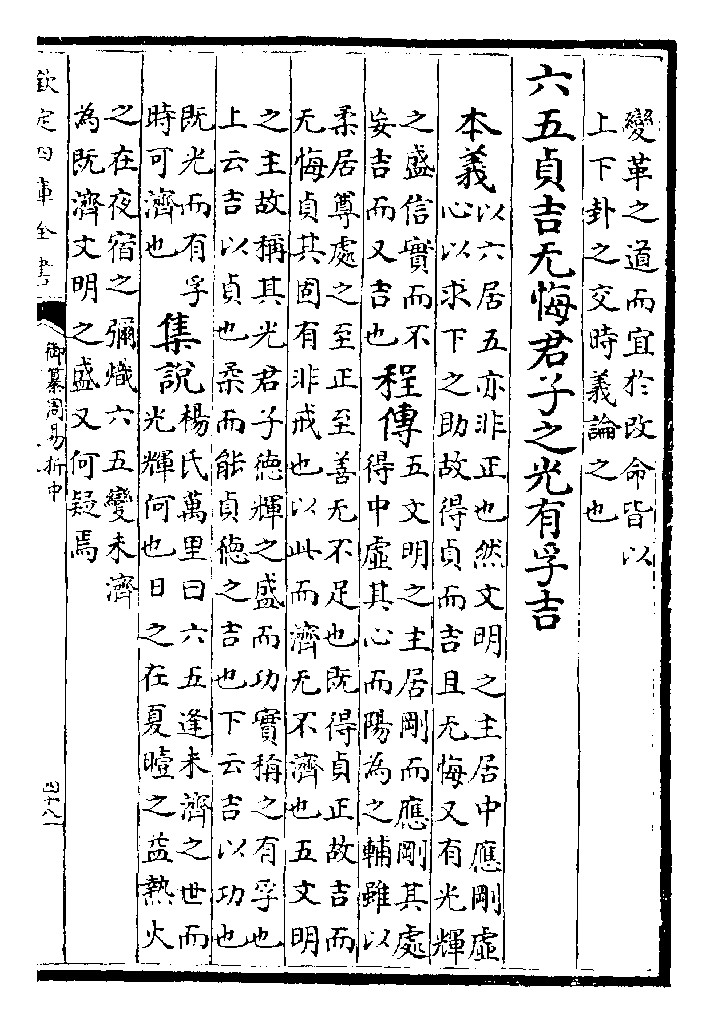 變革之道而宜於改命皆以
上下卦之交時義論之也
六五貞吉无悔君子之光有孚吉
本義
以六居五亦非正也然文明之主居中應剛虛
心以求下之助故得貞而吉且无悔又有光輝
之盛信實而不
妄吉而又吉也
程傳
五文明之主居剛而應剛其處
得中虛其心而陽為之輔雖以
柔居尊處之至正至善无不足也既得貞正故吉而
无悔貞其固有非戒也以此而濟无不濟也五文明
之主故稱其光君子德輝之盛而功實稱之有孚也
上云吉以貞也柔而能貞德之吉也下云吉以功也
既光而有孚
時可濟也
集說
楊氏萬里曰六五逢未濟之世而
光輝何也日之在夏曀之益熱火
之在夜宿之彌熾六五變未濟
為既濟文明之盛又何疑焉
欽定四庫全書
御纂周易折中
四十八